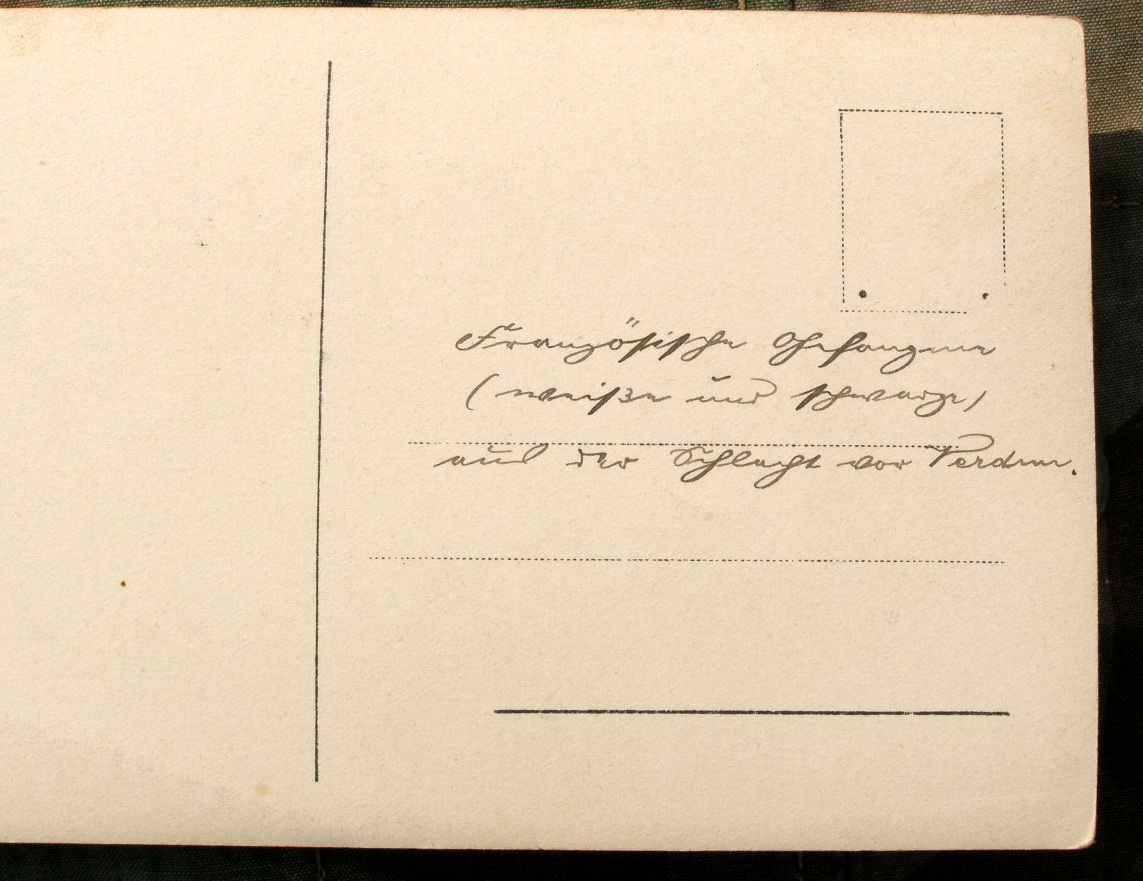 Französische Gefangene
(weiße und schwarze)
aus der Schlacht vor Verdun.